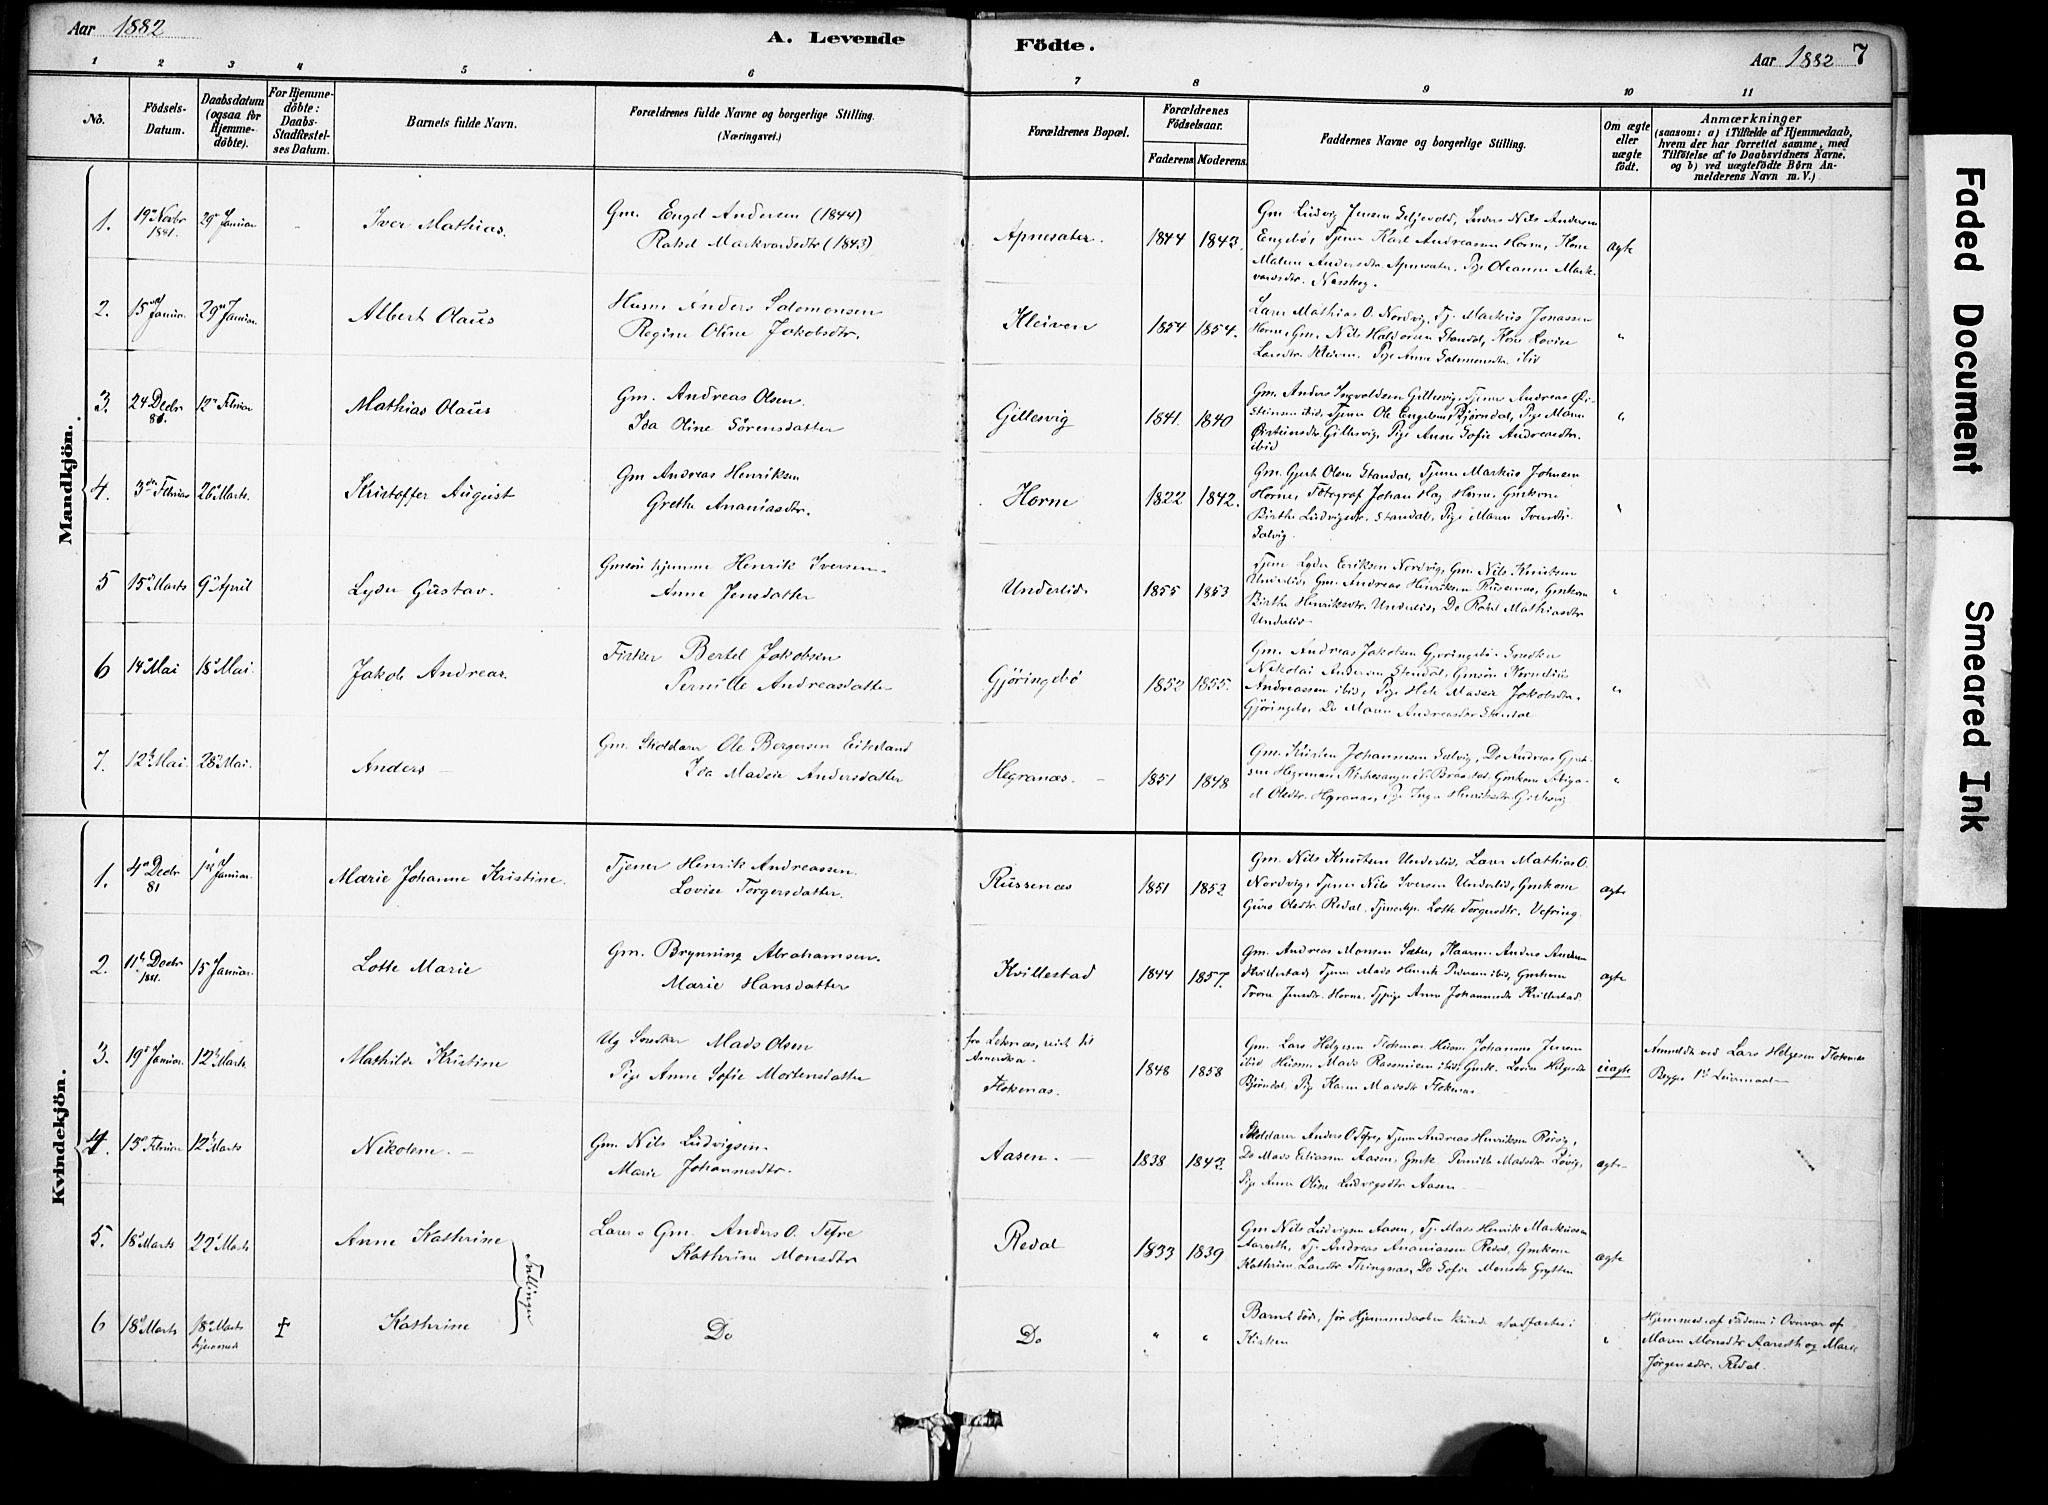 Aar 1882
A. Levende
Födte.
Aar 1882 7
1 2 3 4 5 6 7 8 9 10 11
No.
Födsels-
Datum.
Daabsdatum
(ogsaa for
Hjemme-
döbte).
For Hjemme-
döbte:
Daabs-
Stadfæstel-
ses Datum.
Barnets fulde Navn.
Forældrenes fulde Navne og borgerlige Stilling.
(Næringsvei.)
Forældrenes Bopæl.
Forældrenes
Födselsaar.
Faderens. Moderens.
Faddernes Navne og borgerlige Stilling.
Om ægte
eller
uægte
födt.
Anmærkninger
(saasom: a) i Tilfælde af Hjemmedaab,
hvem der har forrettet samme, med
Tilföielse af to Daabsvidners Navne,
og b) ved uægtefödte Börn An-
melderens Navn m. V.)
Mandkjön.
1. 19 Novbr 1881. 29 Januar - Iver Mathias.
Gm. Engel Andersen (1844)
Rakel Markvardsdtr (1843)
Apnesæter. 1844 1843.
Gm Ludvig Jensen Seljevold, Nils Andersen
Engebö, Tjener Karl Andreassen Horne, Kone
Malene Andersdtr Apnesæter, Pige Oleanne Mark-
vardsdtr.
ægte
2. 15 Januar. 29 Januar. Albert Olaus
Husm Anders Salomonsen
Regine Oline Jakobsdtr.
Kleiven 1854 1854.
Lærer Mathias O. Nordvig, Tj. Markus Jonassen
Horne, Gm. Nils Halvorsen Standal, Kone Lovise
Larsdtr. Kleiven. Pige Anne Salomonsdtr ibid
"
3. 24 Decbr 81. 12 Februar Mathias Olaus
Gm. Andreas Olsen.
Ida Oline Sörensdatter
Gillesvig 1841. 1840
Gm. Anders Ingvaldsen Gillesvig, Tjener Andreas Øi-
steinsen ibid, Tjener Ole Engelsen Bjørndal, Pige Maren
Øisteinsdtr Gillesvig, Pige Anne Sofie Andreasdtr.
ibid
"
4. 3 Februar 26 Marts. Kristoffer August
Gm Andreas Henriksen
Grethe Ananiasdtr.
Horne 1822 1842.
Gm. Gjert Olsen Standal, Tjener Markus Johnsen
Horne, Fotograf Johan Horne, Gmkone
Birthe Ludvigsdtr. Standal, Pige Maren Iversdtr
Solvig.
"
5 15 Marts 9 April Lyder Gustav.
Gmsön hjemme Henrik Iversen
Anne Jensdatter
Underlid. 1855 1853
Tjener Lyder Eriksen Nordvig, Gm. Nils Knutsen
Underlid, Gm. Andreas Henriksen Russenæs, Gmkone
Birthe Henriksdtr. Underlid, Do Rakel Mathiasdtr
Underlid
"
6 14 Mai 18 Mai. Jakob Andreas.
Fisker Bertel Jakobsen
Pernille Andreasdatter
Gjöringebö 1852 1855.
Gm. Andreas Jakobsen Gjöringebö. Snedker
Nikolai Andersen Standal, Gmsön Kornelius
Andreassen ibid, Pige Madsie Jakobsdtr.
Gjöringebö, Do Maren Andreasdtr Standal
"
7. 12 Mai. 28 Mai. Anders -
Gm. Skoldærer Ole Bergersen Eikeland
Ida Madsie Andersdatter
Hegranæs. - 1851 1848
Gm. Kristen Johannesen Solvig, Do Andreas Gjert-
sen Hegrenæs, Kirkesanger Braastad, Gmkone Abiga-
el Olsdtr. Hegranæs, Pige Inger Henriksdtr Gillesvig
"
Kvindekjön.
1. 4 Decbr 81 1ste Januar. Marie Johanne Kristine.
Tjener Henrik Andreassen.
Lovise Torgersdatter.
Russenæs 1851 1852
Gm. Nils Knutsen Underlid, Lærer Mathias O.
Nordvig, Tjener Nils Iversen Underlid, Gmkone
Guro Olsdtr. Redal. Tjenestep. Lotte Torgersdtr. Vefring.
ægte
2. 11 Decbr 1881. 15 Januar. Lotte Marie
Gm. Brynning Abrahamsen.
Marie Hansdatter
Kvillestad 1844 1857.
Gm. Andreas Monsen Sæter, Kaarm. Anders Andersen
Kvillestad, Tjener Mads Henrik Pedersen ibid, Gmkone
Trone Jensdtr. Horne. Tjpige Anne Johannesdtr Kvillestad.
ægte
3. 19 Januar. 12 Marts. Mathilde Kristine
Ug Snedker Mads Olsen
Pige Anne Sofie Mortensdatter
fra Leknæs, reist til
Amerika -
Flokenæs. 1848 1858
Gm. Lars Helgesen Flokenæs Husm. Johannes Jensen
ibid Husm. Mads Rasmussen ibid, Gmk. Lovise Helgesdtr
Bjöndal, Pige Karen Madsdtr Flokenæs
uægte
Anmeldt ved Lars Helgesen Flokenæs
Begges 1ste Leiermaal -
4. 15 Februar 12 Marts Nikoline. -
Gm. Nils Ludvigsen.
Marie Johannesdtr.
Aasen. - 1838 1842.
Skoldærer Anders O. Tefre, Tjener Andreas Henriksen Rörvig,
Do Mads Eliassen Aasen, Gmk Pernille Madsdtr Lövig,
Pige Anne Oline Ludvigsdtr Aasen -
ægte
5. 18 Marts 22 Marts Anne Kathrine
Tvillinger
Lærer o Gm. Anders O. Tefre
Kathrine Monsdtr
Redal 1833 1839
Gm Nils Ludvigsen Aasen, Tj. Mads Henrik Markussen
Aareth, Tj. Andreas Ananiassen Redal, Gmkone
Kathrine Larsdtr Thingnæs, Do Sofie Monsdtr Grytten
ægte
6 18 Marts 18 Marts hjemmed. † Kathrine
Do
Do " "
Barnet död, för Hjemmedaaben kunde stadfæstes i
Kirken
"
Hjemmed. af Faderen i Overvær af
Maren Monsdtr Aareth og Marie
Jörgensdtr. Redal.
Faded Document
Smeared Ink